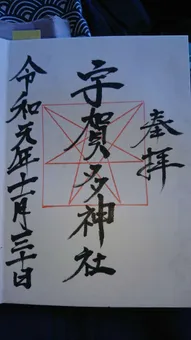 奉拝
宇賀多神社
令和元年十一月三十日